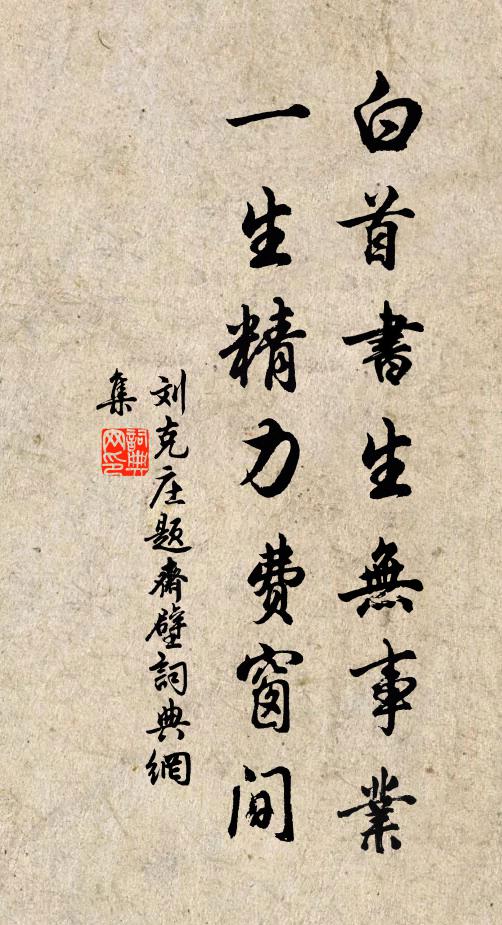 白首書生無事業
一生精力費窗间
刘克庄題齋壁詞典網
集
詞典网印